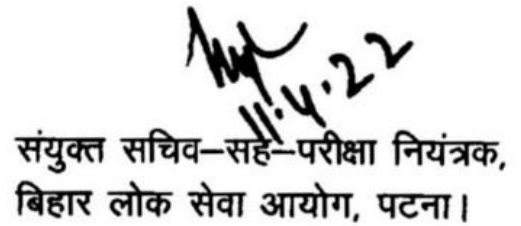 11.4.22
संयुक्त सचिव–सह–परीक्षा नियंत्रक,
बिहार लोक सेवा आयोग, पटना।